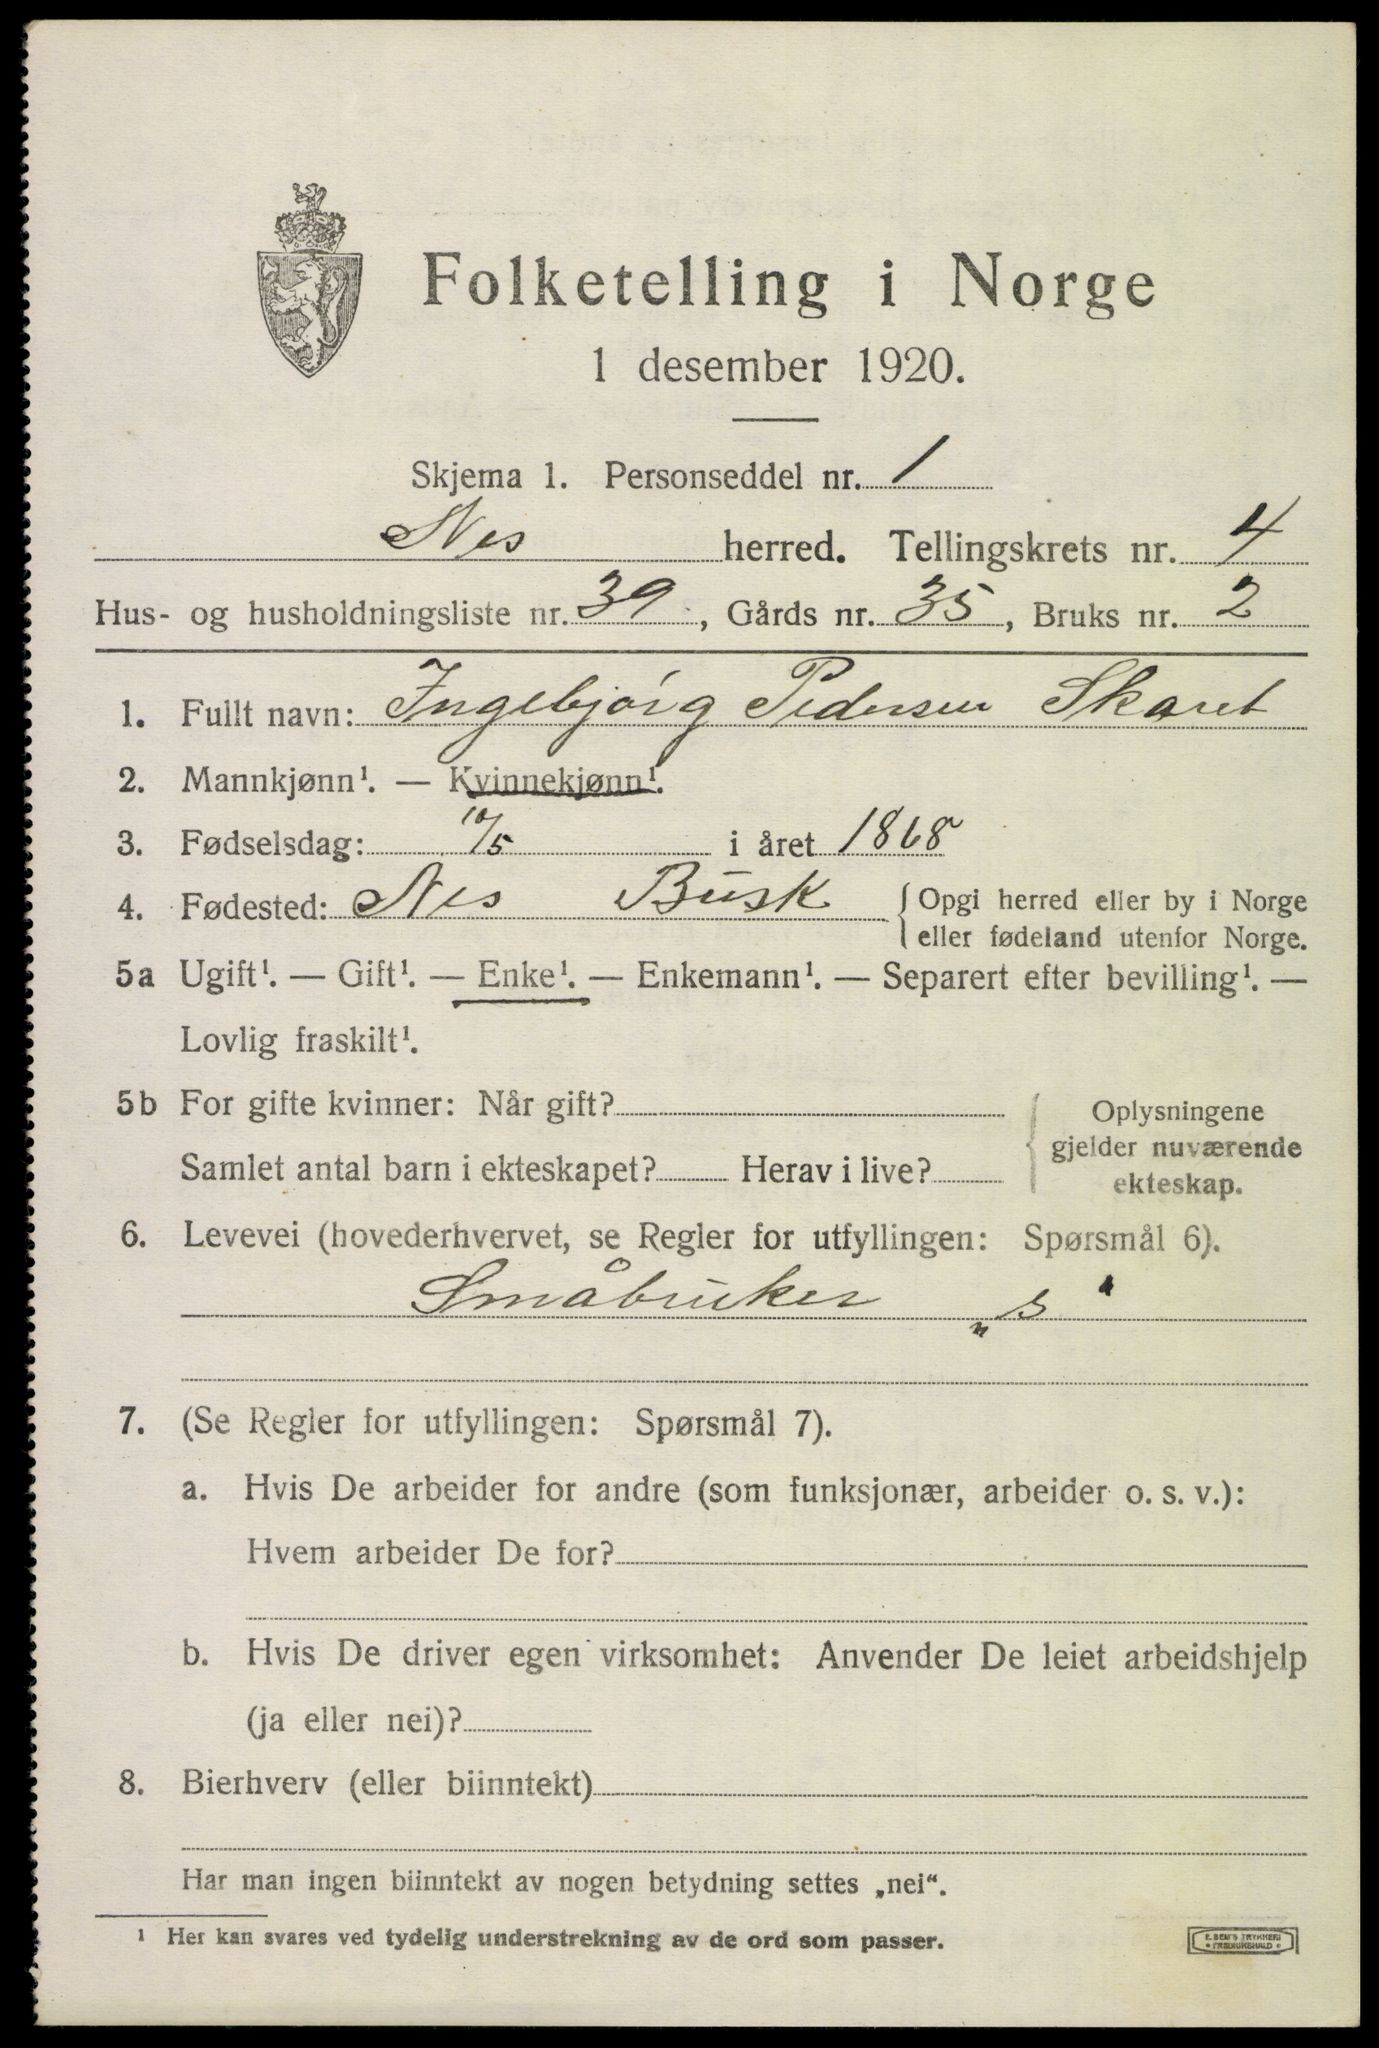 Folketelling i Norge
1 desember 1920.
Skjema 1. Personseddel nr. 1
Nes herred. Tellingskrets nr. 4
Hus- og husholdningsliste nr. 39, Gårds nr. 35, Bruks nr. 2
1. Fullt navn: Ingebjørg Pedersen Skaret
2. Mannkjønn¹. — Kvinnekjønn¹.
3. Fødselsdag: 10/5 i året 1868
4. Fødested: Nes Busk {Opgi herred eller by i Norge
eller fødeland utenfor Norge.
5a Ugift¹. — Gift¹. — Enke¹. — Enkemann¹. — Separert efter bevilling¹. —
Lovlig fraskilt¹.
5b For gifte kvinner: Når gift?
Samlet antal barn i ekteskapet? Herav i live?
Oplysningene
gjelder nuværende
ekteskap.
6. Levevei (hovederhvervet, se Regler for utfyllingen: Spørsmål 6).
Småbruker „ s "
7. (Se Regler for utfyllingen: Spørsmål 7).
a. Hvis De arbeider for andre (som funksjonær, arbeider o. s. v.):
Hvem arbeider De for?
b. Hvis De driver egen virksomhet: Anvender De leiet arbeidshjelp
(ja eller nei)?
8. Bierhverv (eller biinntekt)
Har man ingen biinntekt av nogen betydning settes „nei“.
¹ Her kan svares ved tydelig understrekning av de ord som passer.
E. SEM'S TRYKKERI
• FREDRIKSHALD •